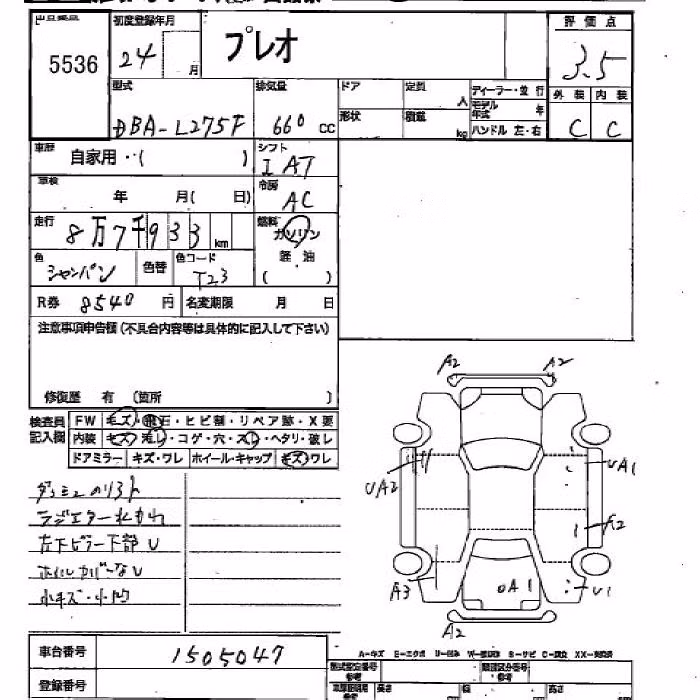 5536
初度登録年月
24 月
プレオ
評価点
3.5
型式
DBA-L275F
排気量
660 cc
ドア
定員
人
形状
積載
kg
ディーラー・並行
モデル年式 年
ハンドル 左・右
外装 内装
C C
車歴
自家用・(     )
シフト
I AT
車検
年 月( 日)
冷房
AC
走行
8万7千933 km
燃料
ガソリン
軽油
(     )
色
シャンパン
色替
色コード
T23
R券 8540 円
名変期限 月 日
注意事項申告欄(不具合内容等は具体的に記入して下さい)
修復歴 有 (箇所     )
検査員記入欄
FW キズ・飛石・ヒビ割・リペア跡・X要
内装 キズ・汚レ・コゲ・穴・スレ・ヘタリ・破レ
ドアミラー キズ・ワレ ホイール・キャップ キズ・ワレ
ラジエター水もれ
左下ピラー下部U
ホイルカバーなし
小キズ・小凹
A2 A2
UA2 UA1
A2
A3 A1 U1
A2
車台番号 1505047
登録番号
A-キズ E-エクボ U-凹み
型式指定番号
類別区分番号
長さ 幅 高さ